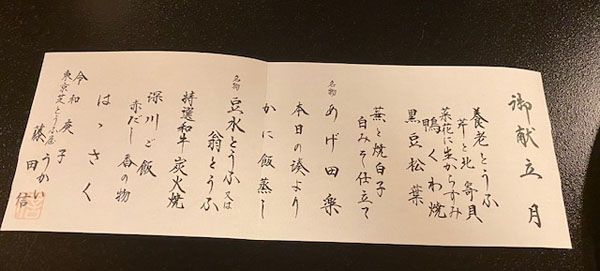 御献立 月
養老とうふ
芹と北寄貝
菜花に生からすみ
鴨くわ焼
黒豆松葉
蕪と焼白子
白みそ仕立て
名物 あげ田楽
本日の湊より
かに飯蒸し
名物 豆水とうふ 又は
翁とうふ
特選和牛 炭火焼
深川ご飯
赤だし 香の物
はっさく
令和 庚子
東京芝とうふ屋うかい
藤田 信